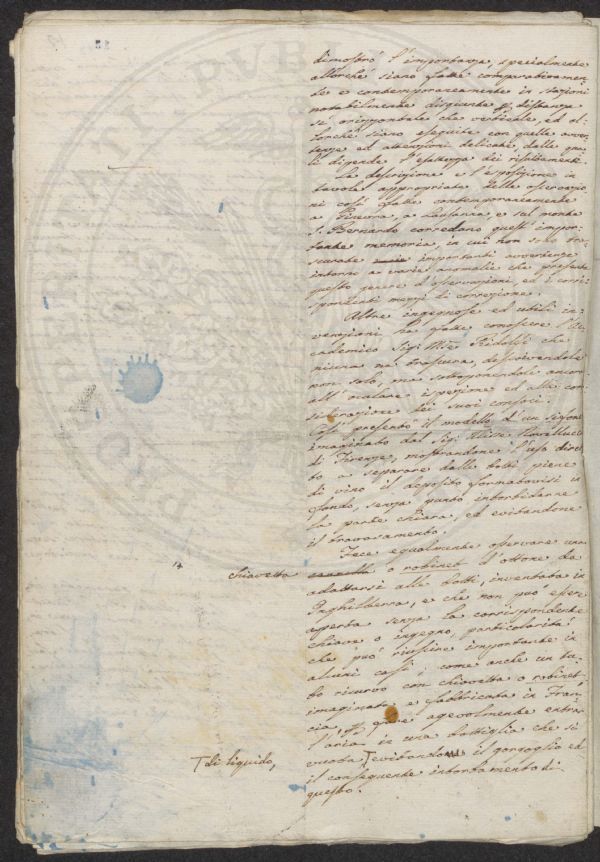 dimostrò l'importanza, specialmente
allorché siano fatte comparativamen-
te e contemporaneamente in stazioni
notabilmente disgiunte p. distanza
sì orizzontale che verticale, ed al-
lorché siano eseguite con quelle avver-
tenze ed attenzioni delicate, dalle qua-
li dipende l'esattezza dei resultamenti.
La descrizione e l'esposizione in
tavole appropriate delle osservazio-
ni così fatte contemporaneamente
a Ginevra, a Lausanna, e sul monte
S. Bernardo corredano quest'impor-
tante memoria, in cui non sono tra-
scurate importanti avvertenze
intorno a varie anomalie che presenta
questo genere d'osservazioni, ed i corri-
spondenti mezzi di correzione.
Altre ingegnose ed utili in-
venzioni ha fatte conoscere l'Ac-
cademico Sig. Mse Ridolfi che
niuna ne trascura, descrivendole
non solo, ma sottoponendole ancora
all'oculare ispezione ed alla con-
siderazione dei suoi consoci.
Così presentò il modello d'un sifone
imaginato dal Sig.
di Firenze, mostrandone l'uso diret-
to a separare dalle botti piene
di vino il deposito formatovisi in
fondo, senza punto intorbidarne
la parte chiara, ed evitandone
il travasamento.
Fece egualmente osservare una
chiavetta o robinet d'ottone da
adattarsi alle botti, inventata in
Inghilterra, e che non può essere
aperta senza la corrispondente
chiave o ingegno, particolarità
che può riuscire importante in
alcuni casi; come anche un tu-
bo ricurvo con chiavetta o robinet
imaginato e fabbricato in Fran-
cia, p. fare agevolmente entrar
l'aria in una bottiglia che si
vuota T evitandone il gorgoglio ed
T di liquido,
il conseguente intorbamento di
questo.